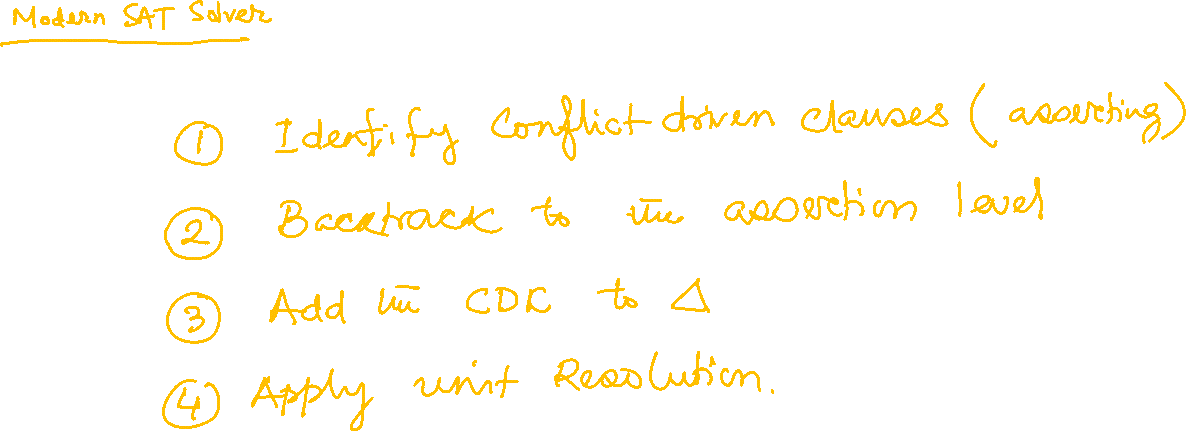 Modern SAT Solver
① Identify Conflict driven clauses (asserting)
② Backtrack to the assertion level
③ Add the CDC to Δ
④ Apply unit Resolution.